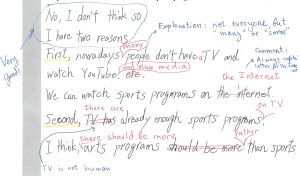 No, I don't think so
I have two reasons
Explanation: not everyone but
"many" or "some"
Very good!
many
First, nowadays people don't have a TV and
and media
watch YouTube etc.
Comment:
Always capital
letter for the
the Internet
We can watch sports programs on the internet
there are
on TV
Second, TV has already enough sports programs
there should be more
rather
I think arts programs should be more than sports
TV is not human